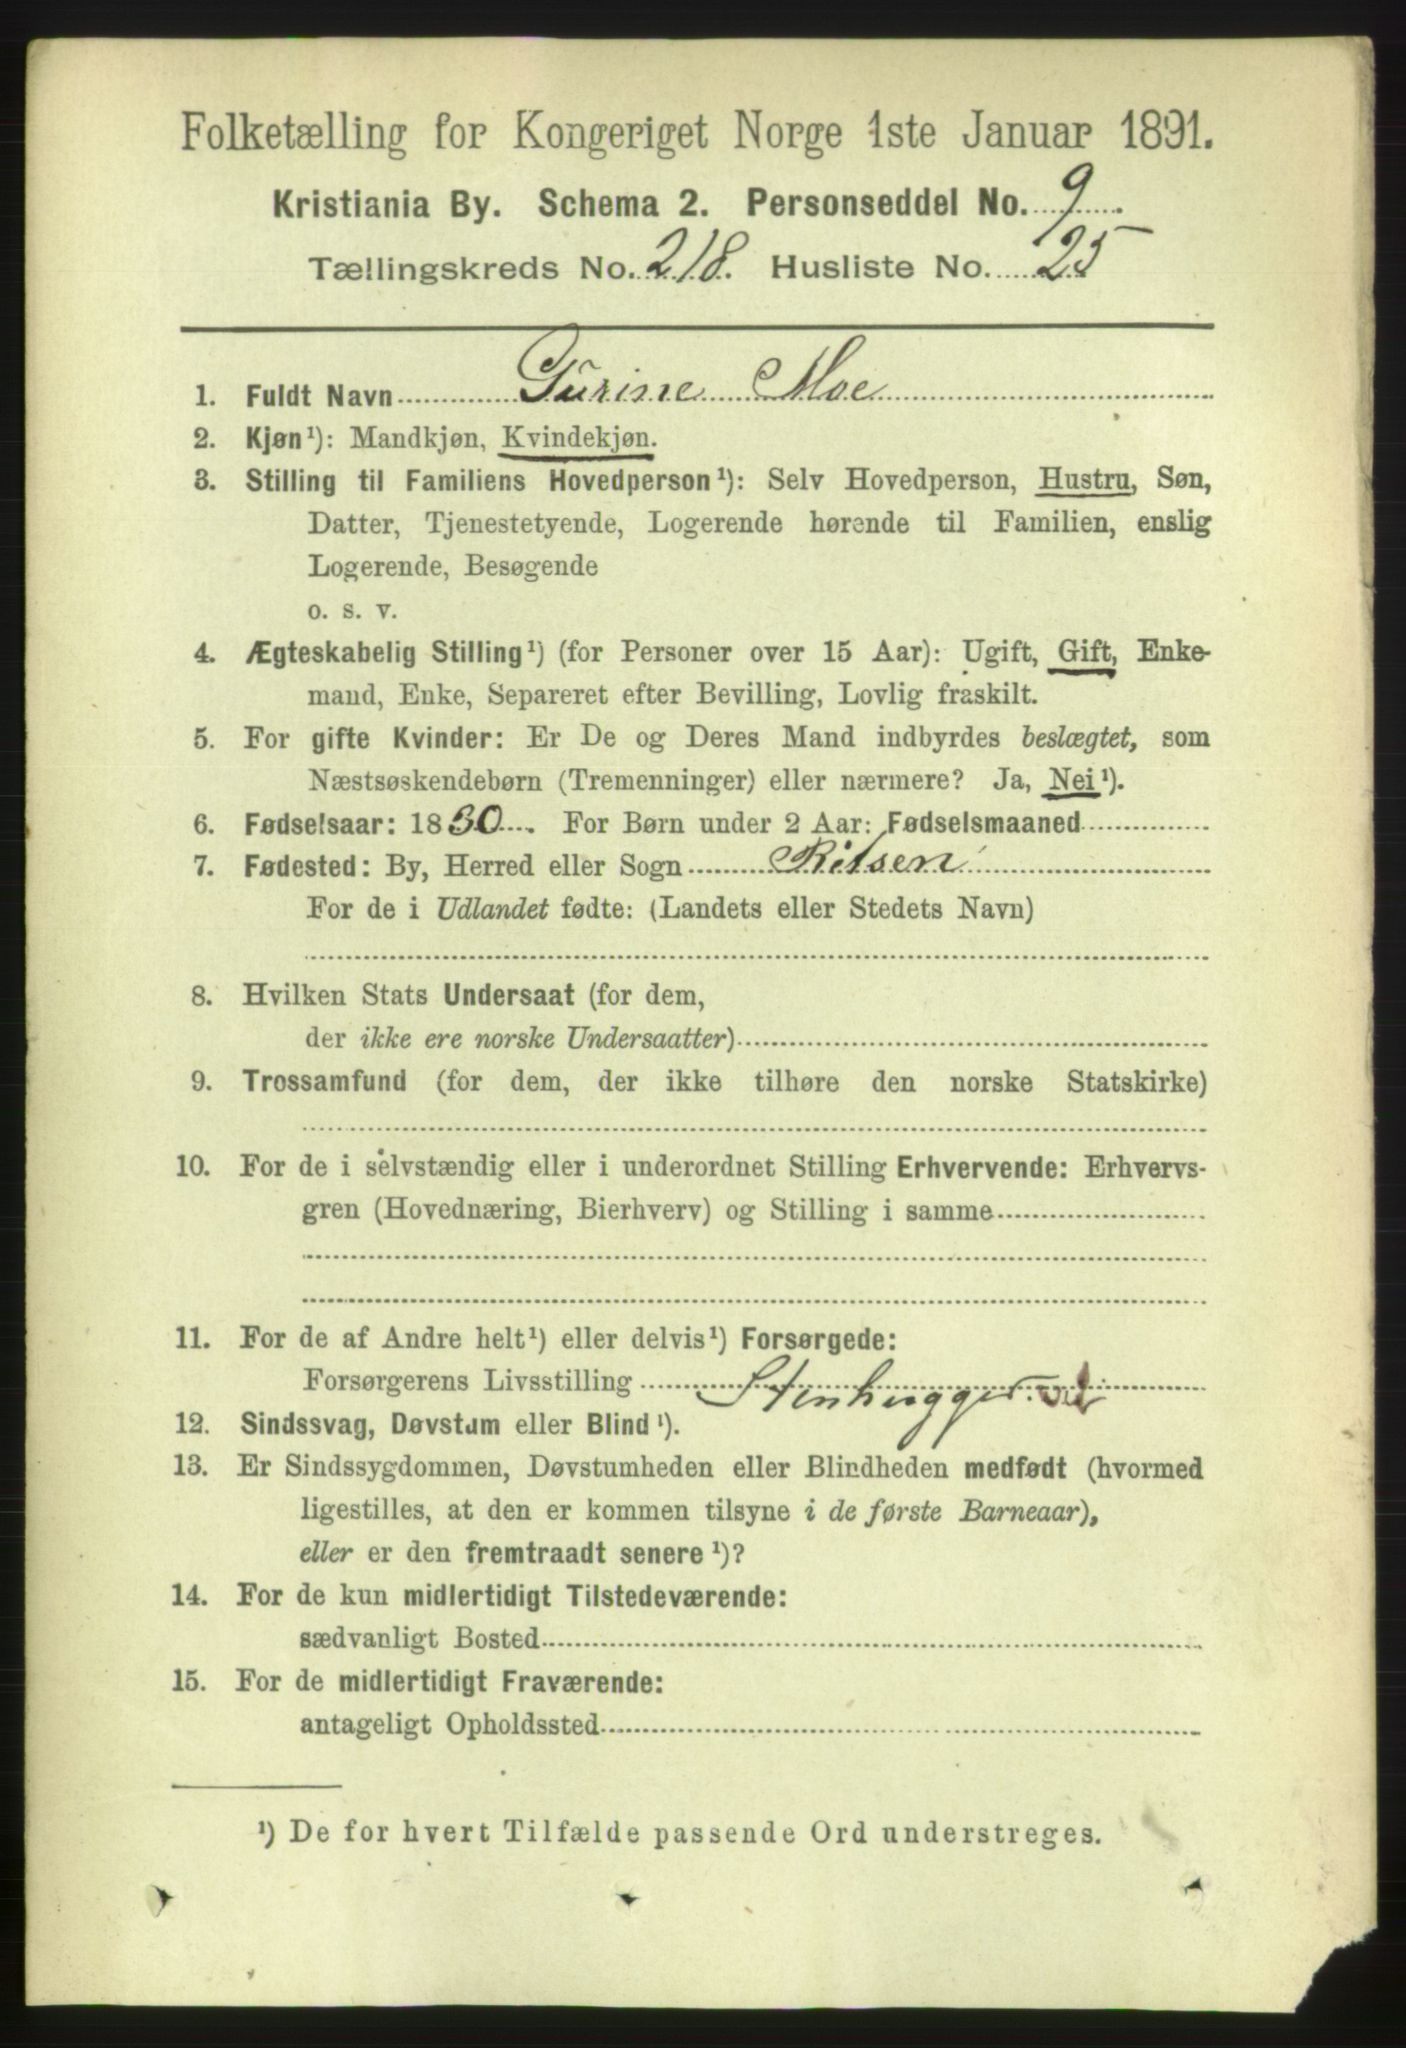 Folketælling for Kongeriget Norge 1ste Januar 1891.
Kristiania By. Schema 2. Personseddel No. 9
Tællingskreds No. 218. Husliste No. 25
1. Fuldt Navn Turine Moe
2. Kjøn¹): Mandkjøn, Kvindekjøn.
3. Stilling til Familiens Hovedperson¹): Selv Hovedperson, Hustru, Søn,
Datter, Tjenestetyende, Logerende hørende til Familien, enslig
Logerende, Besøgende
o. s. v.
4. Ægteskabelig Stilling¹) (for Personer over 15 Aar): Ugift, Gift, Enke-
mand, Enke, Separeret efter Bevilling, Lovlig fraskilt.
5. For gifte Kvinder: Er De og Deres Mand indbyrdes beslægtet, som
Næstsøskendebørn (Tremenninger) eller nærmere? Ja, Nei¹).
6. Fødselsaar: 1830. For Børn under 2 Aar: Fødselsmaaned
7. Fødested: By, Herred eller Sogn
For de i Udlandet fødte: (Landets eller Stedets Navn)
8. Hvilken Stats Undersaat (for dem,
der ikke ere norske Undersaatter)
9. Trossamfund (for dem, der ikke tilhøre den norske Statskirke)
10. For de i selvstændig eller i underordnet Stilling Erhvervende: Erhvervs-
gren (Hovednæring, Bierhverv) og Stilling i samme
11. For de af Andre helt¹) eller delvis¹) Forsørgede:
Forsørgerens Livsstilling Stenhugger
12. Sindssvag, Døvstum eller Blind¹).
13. Er Sindssygdommen, Døvstumheden eller Blindheden medfødt (hvormed
ligestilles, at den er kommen tilsyne i de første Barneaar),
eller er den fremtraadt senere¹)?
14. For de kun midlertidigt Tilstedeværende:
sædvanligt Bosted
15. For de midlertidigt Fraværende:
antageligt Opholdssted
¹) De for hvert Tilfælde passende Ord understreges.